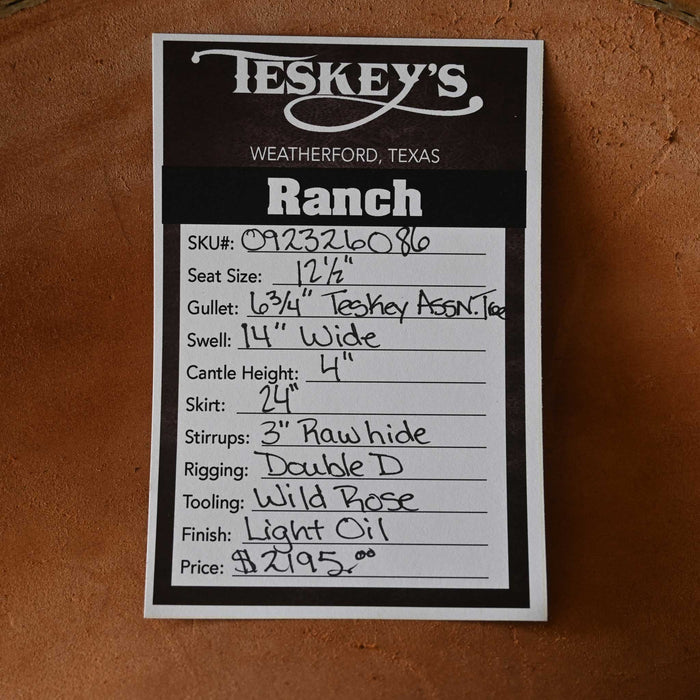 TESKEY'S
WEATHERFORD, TEXAS
Ranch
SKU#: 092326086
Seat Size: 12½"
Gullet: 6¾" Teskey ASSN. Tree
Swell: 14" Wide
Cantle Height: 4"
Skirt: 24"
Stirrups: 3" Rawhide
Rigging: Double D
Tooling: Wild Rose
Finish: Light Oil
Price: $2195.00